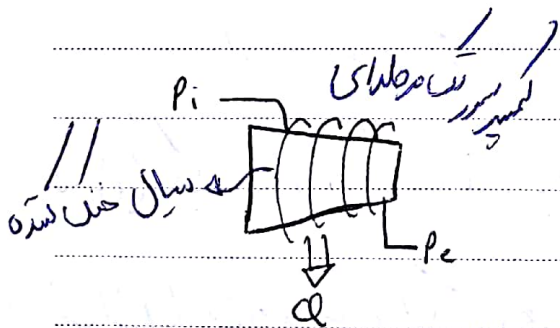 کمپرسور تک مرحله‌ای
Pi
سیال خنک کننده
Pe
Q